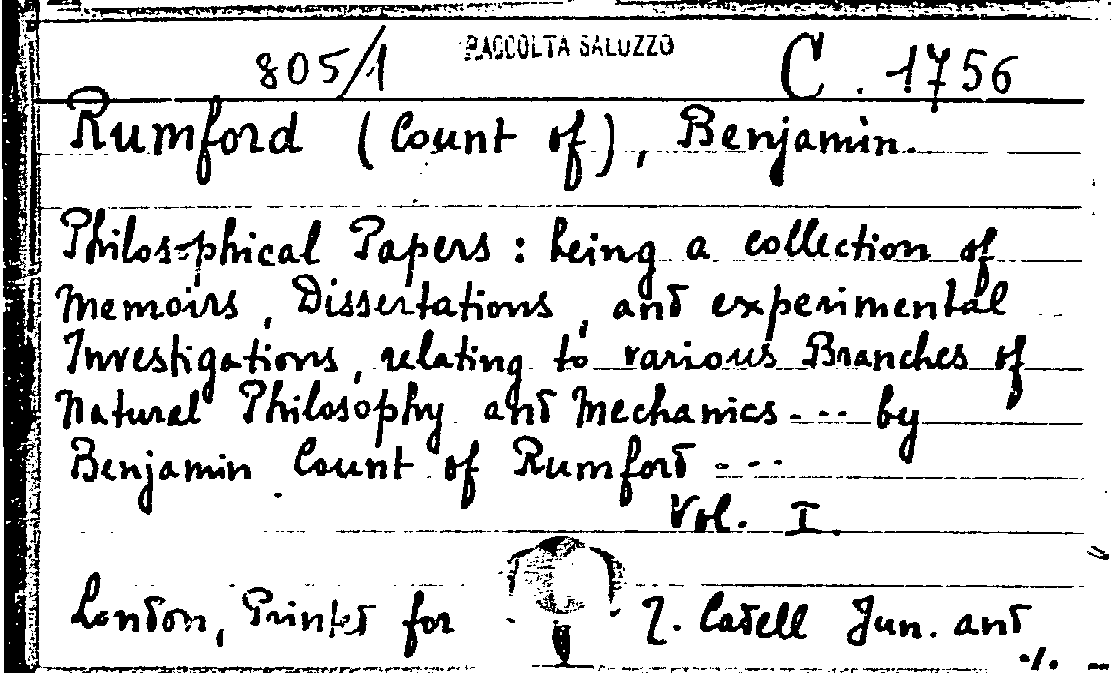 805/1 RACCOLTA SALUZZO C. 1756
Rumford (Count of), Benjamin.
Philosophical Papers: being a collection of
Memoirs, Dissertations, and experimental
Investigations, relating to various Branches of
Natural Philosophy and Mechanics --- by
Benjamin Count of Rumford ---
Vol. I.
London, Printed for T. Cadell Jun. and
./.